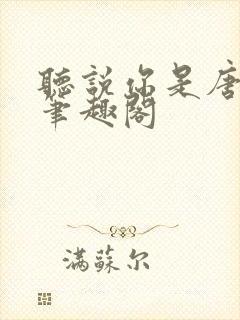 聽説你是唐
筆趣閣
滿蘇尔